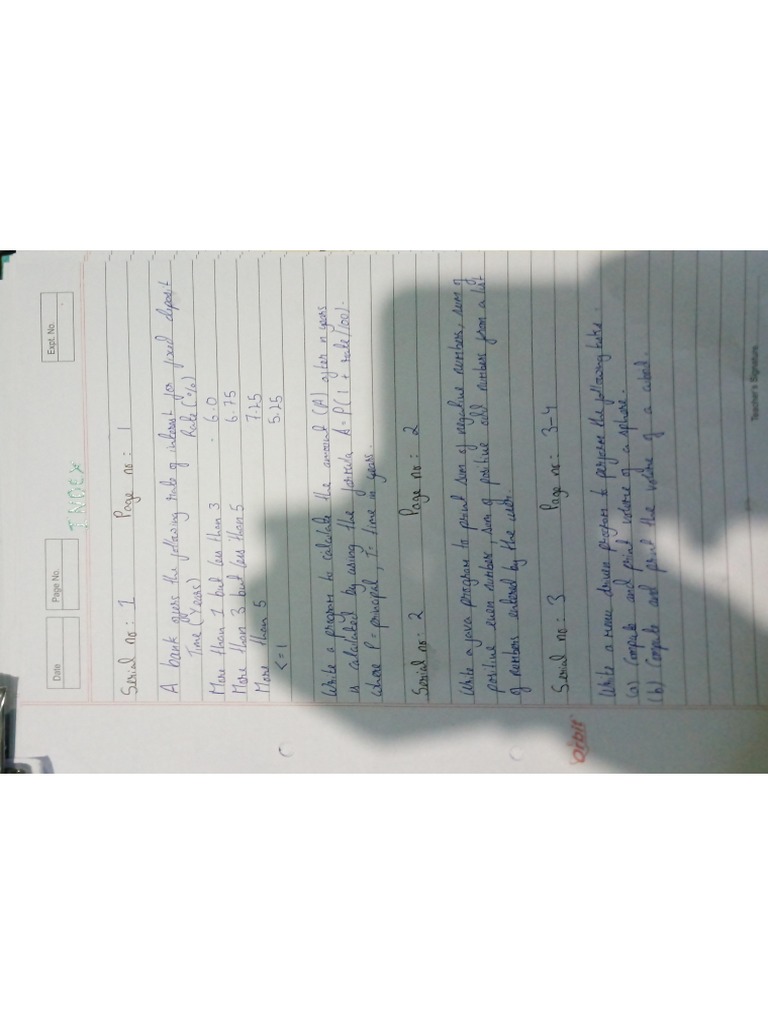 Date
Page No.
Expt. No.
INDEX
Serial no: 1 Page no: 1
A bank gives the following rate of interest for fixed deposit
Time (Years) Rate (%)
More than 1 but less than 3 - 6.0
More than 3 but less than 5 6.75
More than 5 7.25
<=1 5.25
Write a program to calculate the amount (A) after n years
is calculated by using the formula A = P(1 + rate/100).
where P = principal, T = time in years.
Serial no: 2 Page no: 2
Write a java program to print sum of negative numbers, sum of
positive even numbers sum of positive odd numbers from a list
of numbers entered by the user.
Serial no: 3 Page no: 3-4
Write a menu driven program to perform the following tasks.
(a) Compute and print volume of a sphere.
(b) Compute and print the volume of a cuboid.
Teacher's Signature
Orbit